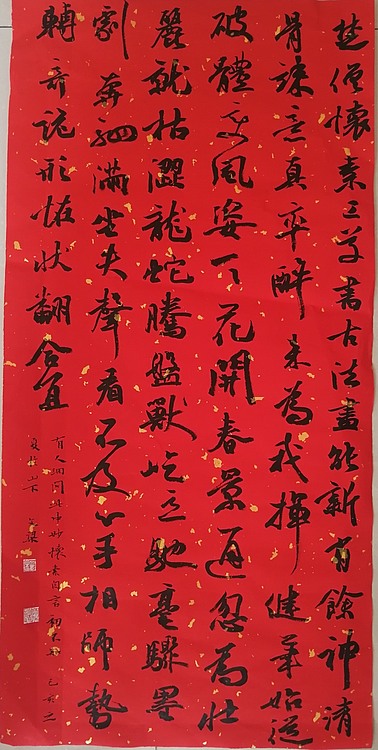 楚僧懷素工草書古法盡能新有餘神清
骨竦意真率醉来為我揮健筆始從
破體變風姿一一花開春景遲忽為壯
麗就枯澀龍蛇騰盤獸屹立馳毫驟墨
劇奔駟滿坐失聲看不及心手相師勢
轉奇詭形怪狀翻合宜
有人細問此中妙懷素自言初不知 己亥之
夏於